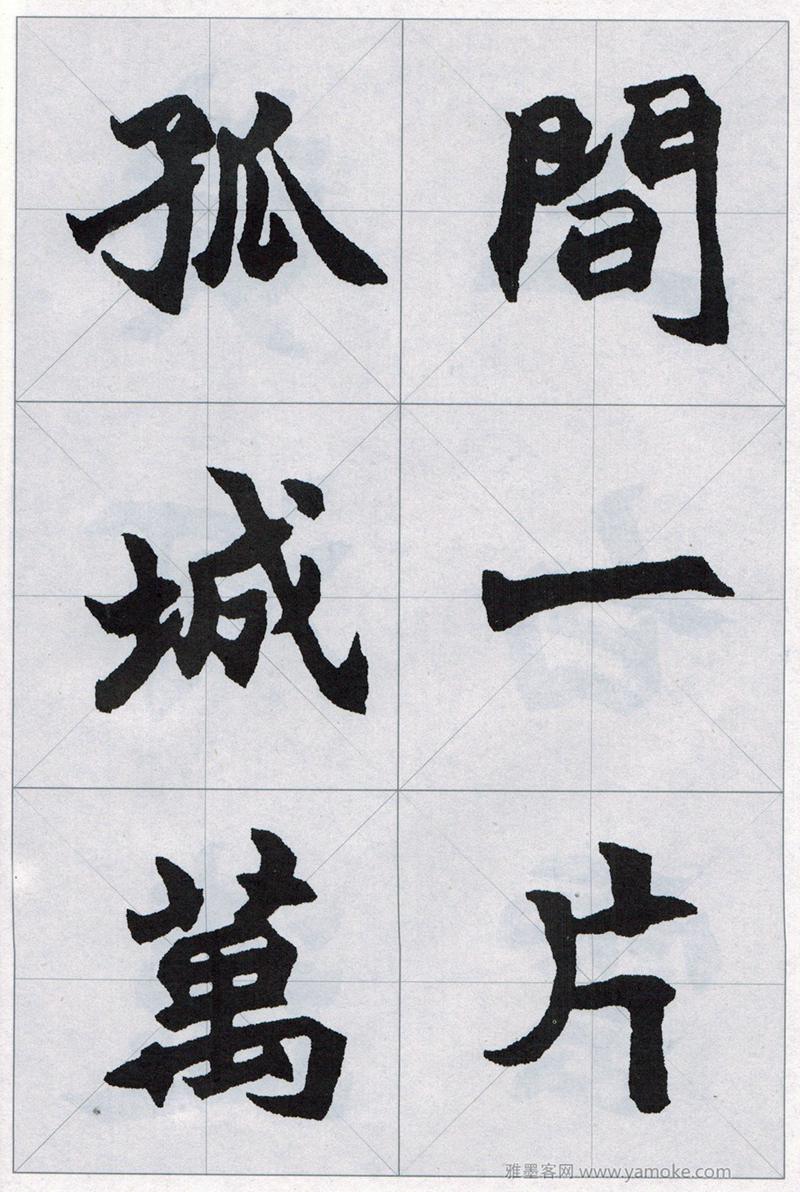 間一片
孤城萬
雅墨客网 www.yamoke.com